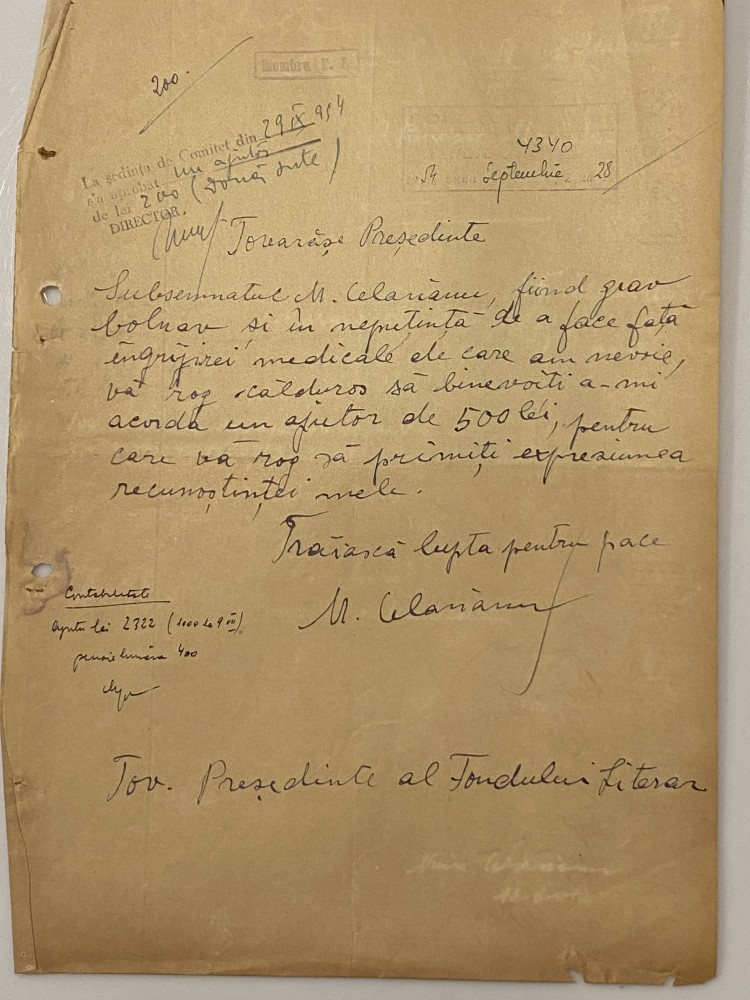 200.
Membru F. L.
La ședința de Comitet din 29 IX 954
s'a aprobat un ajutor
de lei 200 (două sute)
DIRECTOR,
4340
54 Septembrie 28
Tovarășe Președinte
Subsemnatul M. Celarianu, fiind grav
bolnav și în neputință de a face față
îngrijirei medicale de care am nevoie,
vă rog călduros să binevoiți a-mi
acorda un ajutor de 500 lei, pentru
care vă rog să primiți expresiunea
recunoștinței mele.
Trăiască lupta pentru pace
M. Celarianu
Contabilitate
ajutor lei 2322 (1000 la 9 VII)
pensie lunară 400
Tov. Președinte al Fondului Literar